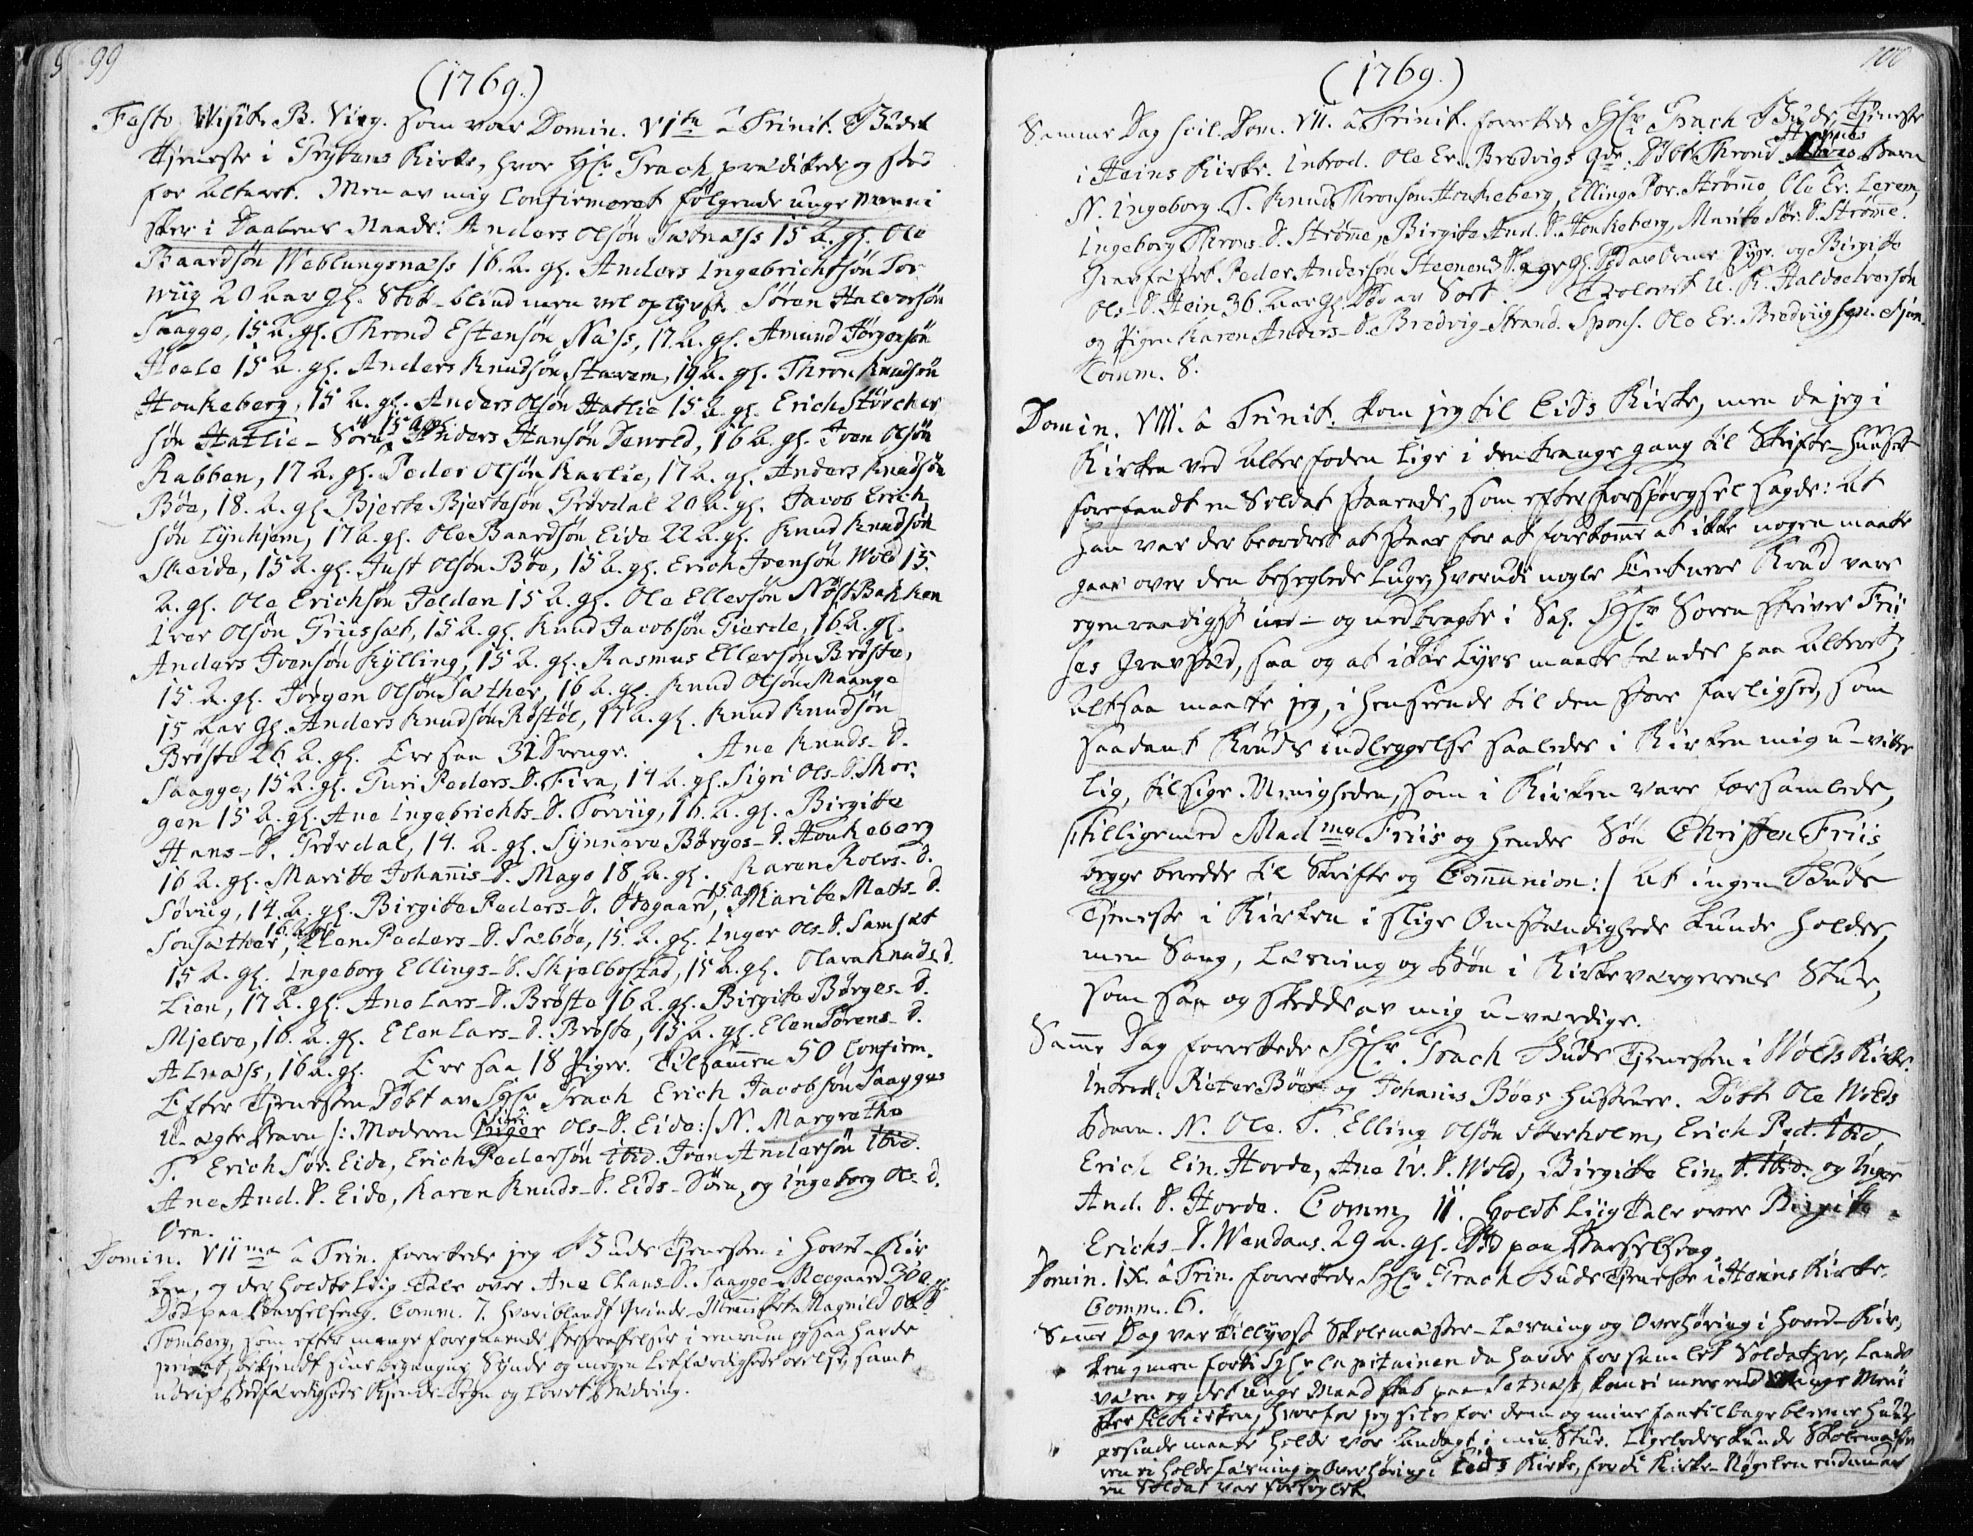 99
(1769.)
Festo Visit. B. Virg. som var Domin. VIta â Trinit. Guds
Tjeneste i Grytens Kirke, hvor Hr. Grach prædikede og stod
for Alteret. Men av mig Confirmeret følgende unge Menni
sker i Daabens Naade: Anders Olsøn Sætnæss 15 A. gl. Ole
Baardsøn Weblungsnæss 16. A. gl. Anders Ingebrichtsøn Tor-
wiig 20 Aar gl. blind men vel oplyst. Søren Halvorsøn
Saagge, 15 A. gl. Thrond Estensøn Næss, 17 A. gl. Amund Jørgensøn
Hoele 15 A. gl. Anders Knudsøn Stavem, 19 A. gl. Thron Knudsøn
Honkeberg, 15 A. gl. Anders Olsøn Hatlie 15 A. gl. Erich Størcher
søn Hatlie-Søra, 15 A. gl. Anders Hansøn Dewold, 16 A. gl. Iven Olsøn
Rabben, 17 A. gl. Peder Olsøn Karlie, 17 A. gl. Anders Knudsøn
Bøe, 18. A. gl. Bjerte Bjertesøn Grøvdal 20 A. gl. Jacob Erich
søn Lynhjem, 17 A. gl. Ole Baardsøn Eide 22 A. gl. Knud Knudsøn
Skeide, 15 A. gl. Just Olsøn Bøe, 15 A. gl. Erich Ivensøn Wold 15.
A. gl. Ole Erichsøn Jelden 15 A. gl. Ole Ellersøn NøstBakken
Iver Olsøn Griisset, 15 A. gl. Knud Jacobsøn Gierde, 16 A. gl.
Anders Ivensøn Kylling, 15 A. gl. Rasmus Ellersøn Brøste,
15 A. gl. Jørgen Olsøn Sæther, 16 A. gl. Knud Olsøn Maange
15 Aar gl. Anders Knudsøn Røstøl, 17 A. gl. Knud Knudsøn
Brøste 26 A. gl. Ere saa 32 Drenge. Ane Knuds-D.
Saagge, 15 A. gl. Guri Peders-D. Fiva, 14 A. gl. Sigri Ols-D. Skor-
gen 15 A. gl. Ane Ingebrichts-D. Torviig, 16. A. gl. Birgitte
Hans-D. Grøvdal, 14. A. gl. Synneve Børges-D. Honkeberg
16 A. gl. Maritte Johannis-D. Mage 18 A. gl. Karen Roers-D.
Søviig, 14 A. gl. Birgitte Peders-D. Ødegaard, 15 A. gl. Maritte Mats-D.
Sonsæther, 16 A. gl. Elen Peders-D. Sæbøe, 15. A. gl. Inger Ols-D. Samset
15 A. gl. Ingeborg Ellings-D. Skjelbostad, 15 A. gl. Olava Knuds D.
Lien, 17 A. gl. Ane Lars-D. Brøste 16 A. gl. Birgitte Børges-D.
Mjelva, 16. A. gl. Elen Lars-D. Brøste, 15 A. gl. Elen Sørens-D.
Alnæss, 16 A. gl. Ere saa 18 Piger. Tilsammen 50 Confirm.
Efter Tjenesten Døbt av Hr. Grach Erich Jacobsøn Saagges
U-ægte Barn /: Moderen Sigri Ols-D. Eide :/ N. Margrethe
T. Erich Sør. Eide, Erich Pedersøn ibid. Iven Andersøn ibid.
Ane And. D. Eide, Karen Knuds-D. Eids-Søra, og Ingeborg Ols D.
Øra.
Domin. VIIma â Trin. forrettede jeg Guds Tjenesten i Hoved-Kir
ken, og der holdte Liig-Tale over Ane Chans-D. Saagge-Meegaard 30 A. gl.
Død paa Barselseng. Comm. 7. hvoriblandt Qvinde-Mennisket Magnild Ols D.
Tomberg, som efter mange foregaaende i enrum og saa havde
bekjendt sine begangne Synde og megen Letfærdigheds øvelse, samt
Bodfærdigheds Kjende-Tegn og lovet Bedring.

100
(1769.)
Samme Dag scil. Dom. VII. â Trinit. forrettede Hr. Grach Guds Tjeneste
i Heins Kirke. Introd. Ole Er. Bredvigs Qde. Døbt Thrond Barn
N. Ingeborg. T. Knud Thronsøn Honkeberg, Elling Tor. Strømme, Ole Er. Lerem,
Ingeborg Throns-D. Strømme, Birgitte And. D. Honkeberg, Maritte Sør. D. Strømme.
Gravfæstet Peder Andersøn Steenens D. og Birgitte
Ols-D. Hein 36 Aar gl. Død av Sot. Trolovet U. K. Haldo Iversøn
og Pigen Karen Anders-D. Bredvig-Strand. Spons. Ole Er. Bredviig
Comm. 8.
Domin. VIII. â Trinit. kom jeg til Eids Kirke, men da jeg i
Kirken ved Alterfoden lige i den trange gang til Skrifte-Huuset
forefandt en Soldat staaende, som efter Forspørgsel sagde: At
han var der beordret at staae for at forekomme at ikke nogen maatte
gaae over den beseglede Luge, hvorudi nogle Centnere Krud vare
egenraadigst ind- og nedbragte i Sal. Hr. Sorenskriver Frii
ses Gravsted, saa og at ikke Lyse maatte tændes paa Alteret;
Altsaa maatte jeg, i henseende til den store farlighed, som
saadant Kruds indleggelse saaledes i Kirken mig u-vitter
lig, tilsige Menigheden, som i Kirken vare forsamlede,
/: tilligemed Madme Friis og hendes Søn Christen Friis,
begge beredde til Skrifte og Communion :/ At ingen Guds
Tjeneste i Kirken i slige Omstændigheder kunde holdes,
men Sang, Læsning og Bøn i Kirkeværgerens Stue,
som saa og skedde av mig u-værdige.
Samme Dag forrettede Hr. Grach Guds Tjenesten i Wolds Kirke.
Introd. Bøes og Johannis Bøes Hustruer. Døbt Ole Wolds
Barn. N. Ole. T. Elling Olsøn Norholm, Erich Ped. ibid,
Erich Ein. Horde, Ane Iv. D. Wold, Birgitte Ein. D. ibid. og Inger
And. D. Horde. Comm. 11. holdt Liig Tale over Birgitte
Erichs-D. Wendans. 29 A. gl. Død paa Barselseng.
Domin. IX. â Trin. forrettede Hr. Grach Guds Tjeneste i Heins Kirke.
Comm. 6.
Samme Dag var tillyst Skolemæster-Læsning og Overhøring i Hoved-Kir-
ken, men fordi Hr. Capitainen da havde forsamlet Soldater, Land-
væren og det unge Mandskab paa Sætnæss kom ei mere end Menni
sker til Kirken, hvorfor jeg selv for dem og mine faa tilbageblevne Huus
gesinde maatte holde vor Andagt i min Stue. Ligeledes kunde Skolemæste
ren ei holde Læsning og Overhøring i Eids Kirke, fordi Kirke-Nøgelen
en Soldat var